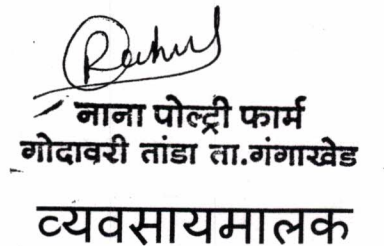 नाना पोल्ट्री फार्म
गोदावरी तांडा ता.गंगाखेड
व्यवसायमालक